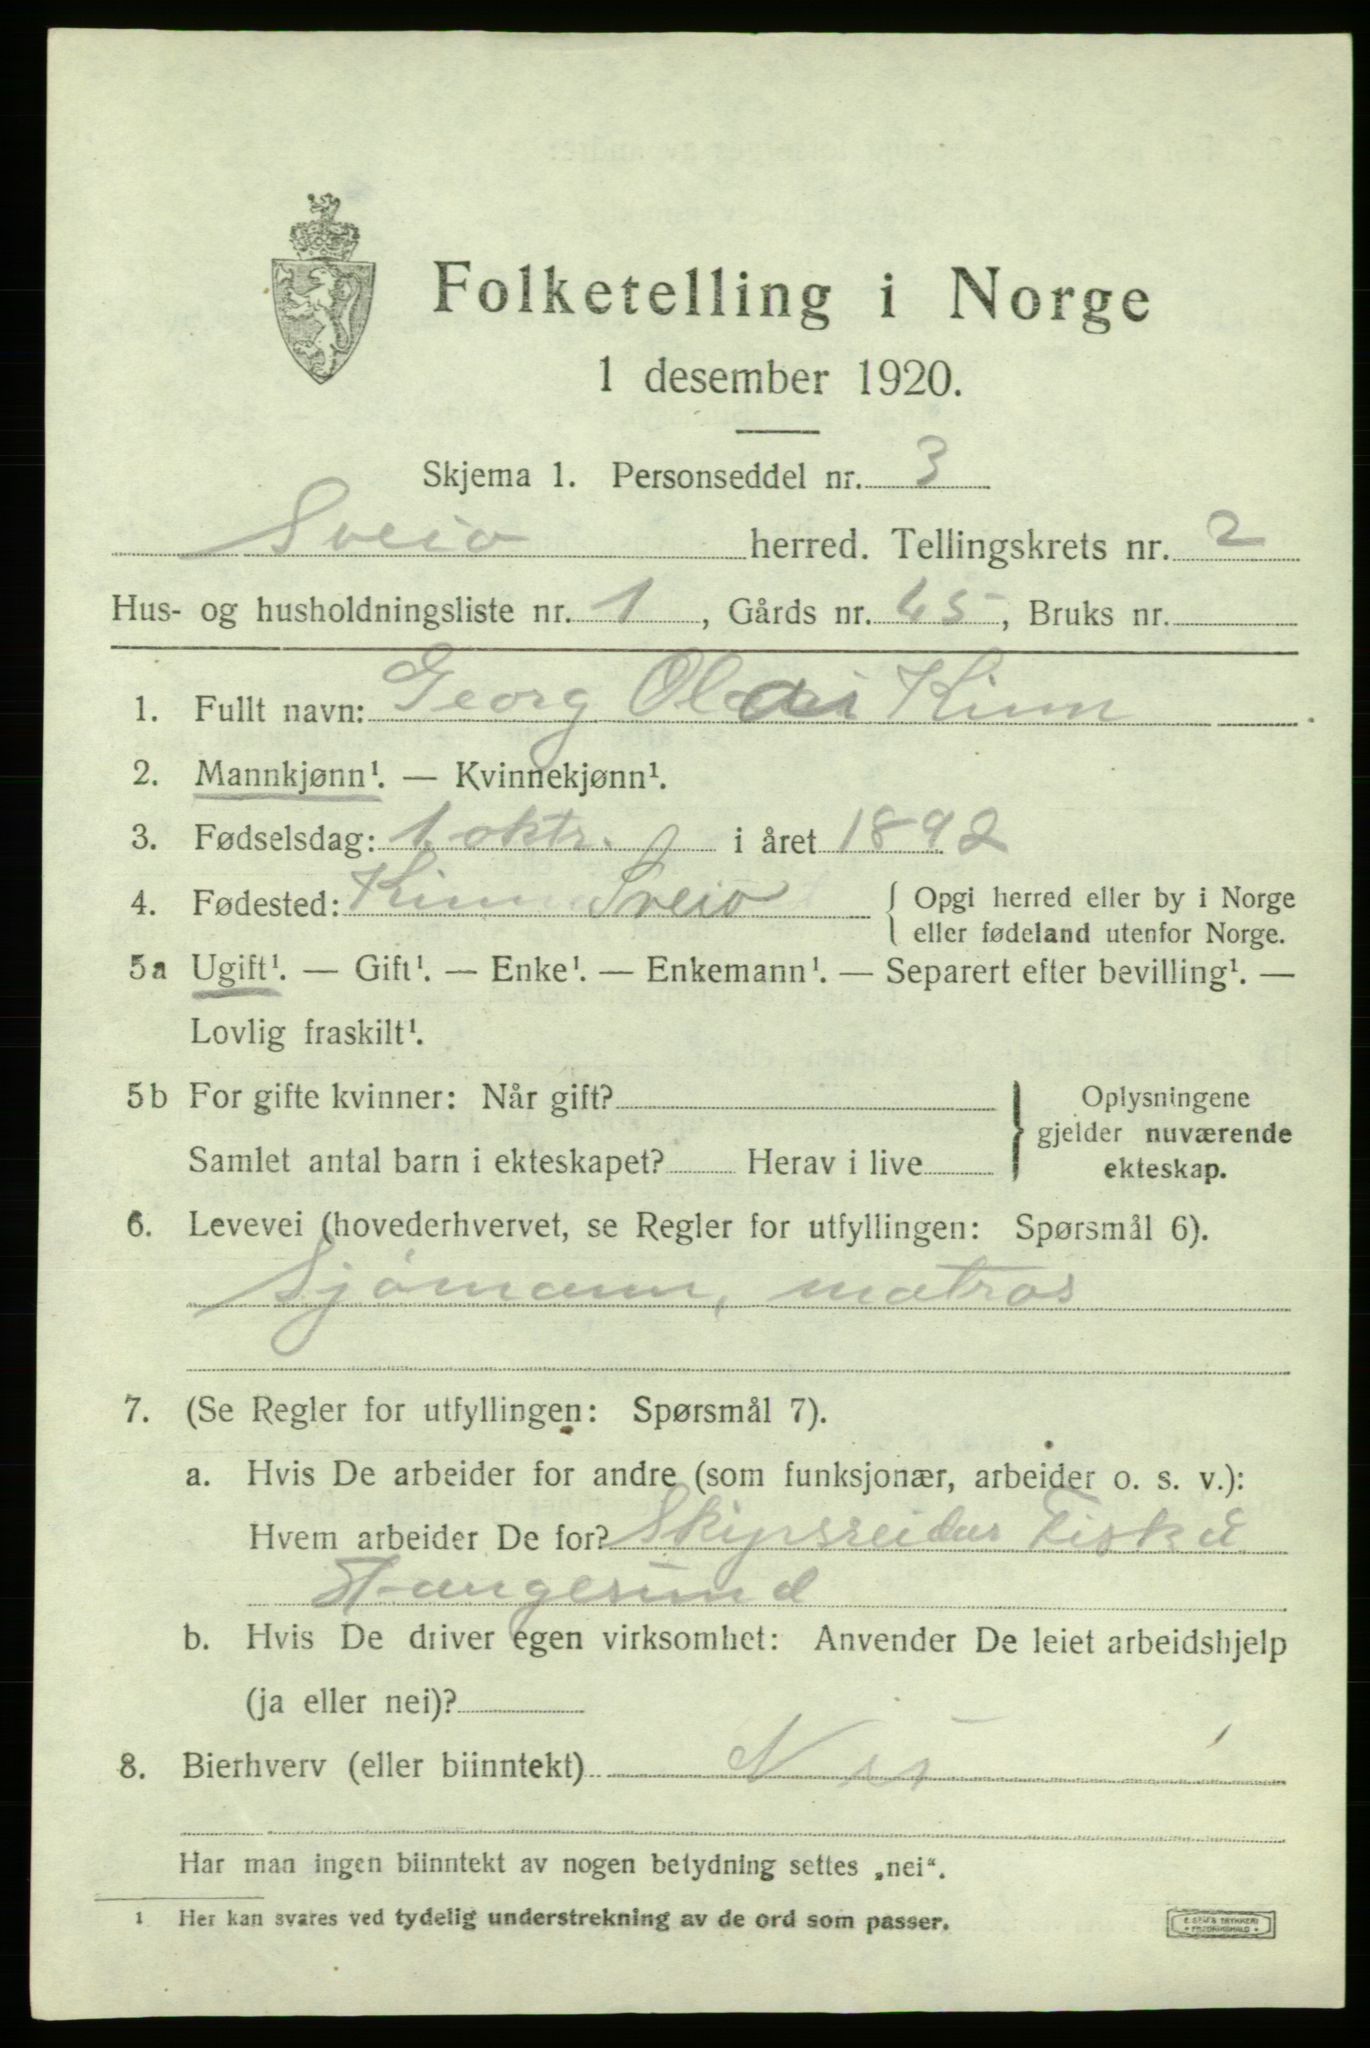 Folketelling i Norge
1 desember 1920.
Skjema 1. Personseddel nr. 3
Sveio herred. Tellingskrets nr. 2
Hus- og husholdningsliste nr. 1, Gårds nr. 45, Bruks nr.
1. Fullt navn: Georg Olai Kinn
2. Mannkjønn¹. — Kvinnekjønn¹.
3. Fødselsdag: 1 oktr. i året 1892
4. Fødested: Kinn Sveio { Opgi herred eller by i Norge
eller fødeland utenfor Norge.
5a Ugift¹. — Gift¹. — Enke¹. — Enkemann¹. — Separert efter bevilling¹. —
Lovlig fraskilt¹.
5b For gifte kvinner: Når gift? } Oplysningene
gjelder nuværende
Samlet antal barn i ekteskapet? Herav i live ekteskap.
6. Levevei (hovederhvervet, se Regler for utfyllingen: Spørsmål 6).
Sjömann, matros
7. (Se Regler for utfyllingen: Spørsmål 7).
a. Hvis De arbeider for andre (som funksjonær, arbeider o. s. v.):
Hvem arbeider De for? Skipsreidar
Haugesund
b. Hvis De driver egen virksomhet: Anvender De leiet arbeidshjelp
(ja eller nei)?
8. Bierhverv (eller biinntekt) Nei
Har man ingen biinntekt av nogen betydning settes „nei“.
1 Her kan svares ved tydelig understrekning av de ord som passer.